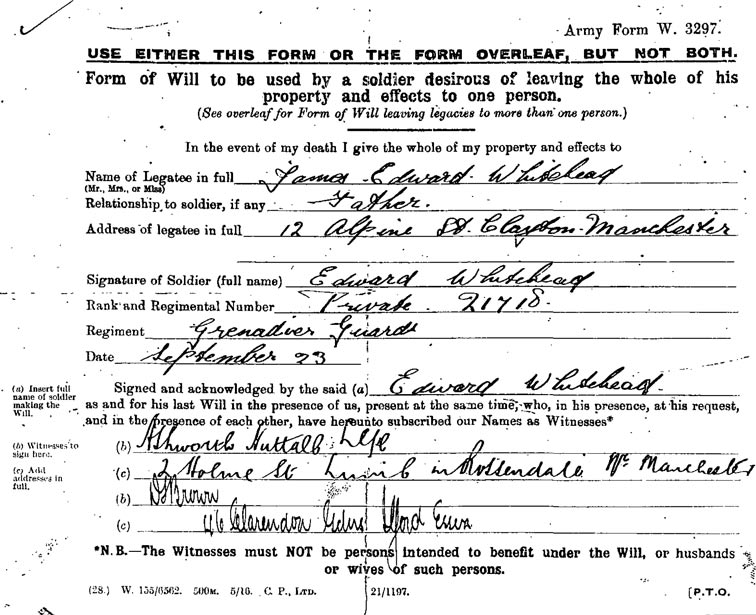 Army Form W. 3297.
USE EITHER THIS FORM OR THE FORM OVERLEAF, BUT NOT BOTH.
Form of Will to be used by a soldier desirous of leaving the whole of his
property and effects to one person.
(See overleaf for Form of Will leaving legacies to more than one person.)
In the event of my death I give the whole of my property and effects to
Name of Legatee in full James Edward Whitehead
(Mr., Mrs., or Miss)
Relationship to soldier, if any Father.
Address of legatee in full 12 Alpine St. Clayton Manchester
Signature of Soldier (full name) Edward Whitehead
Rank and Regimental Number Private 21718.
Regiment Grenadier Guards
Date September 23
(a) Insert full name of soldier making the Will.
Signed and acknowledged by the said (a) Edward Whitehead.
as and for his last Will in the presence of us, present at the same time, who, in his presence, at his request,
and in the presence of each other, have hereunto subscribed our Names as Witnesses*
(b) Witnesses to sign here.
(b) Ashworth Nuttall
(c) Add addresses in full.
(c) 2 Holme St in Rossendale Nr Manchester
(b) Brown
(c) 46 Clarendon Gdns Ilford Essex
*N.B.—The Witnesses must NOT be persons intended to benefit under the Will, or husbands
or wives of such persons.
(28.) W. 155/6562. 500M. 5/16. C. P., LTD. 21/1197. [P.T.O.